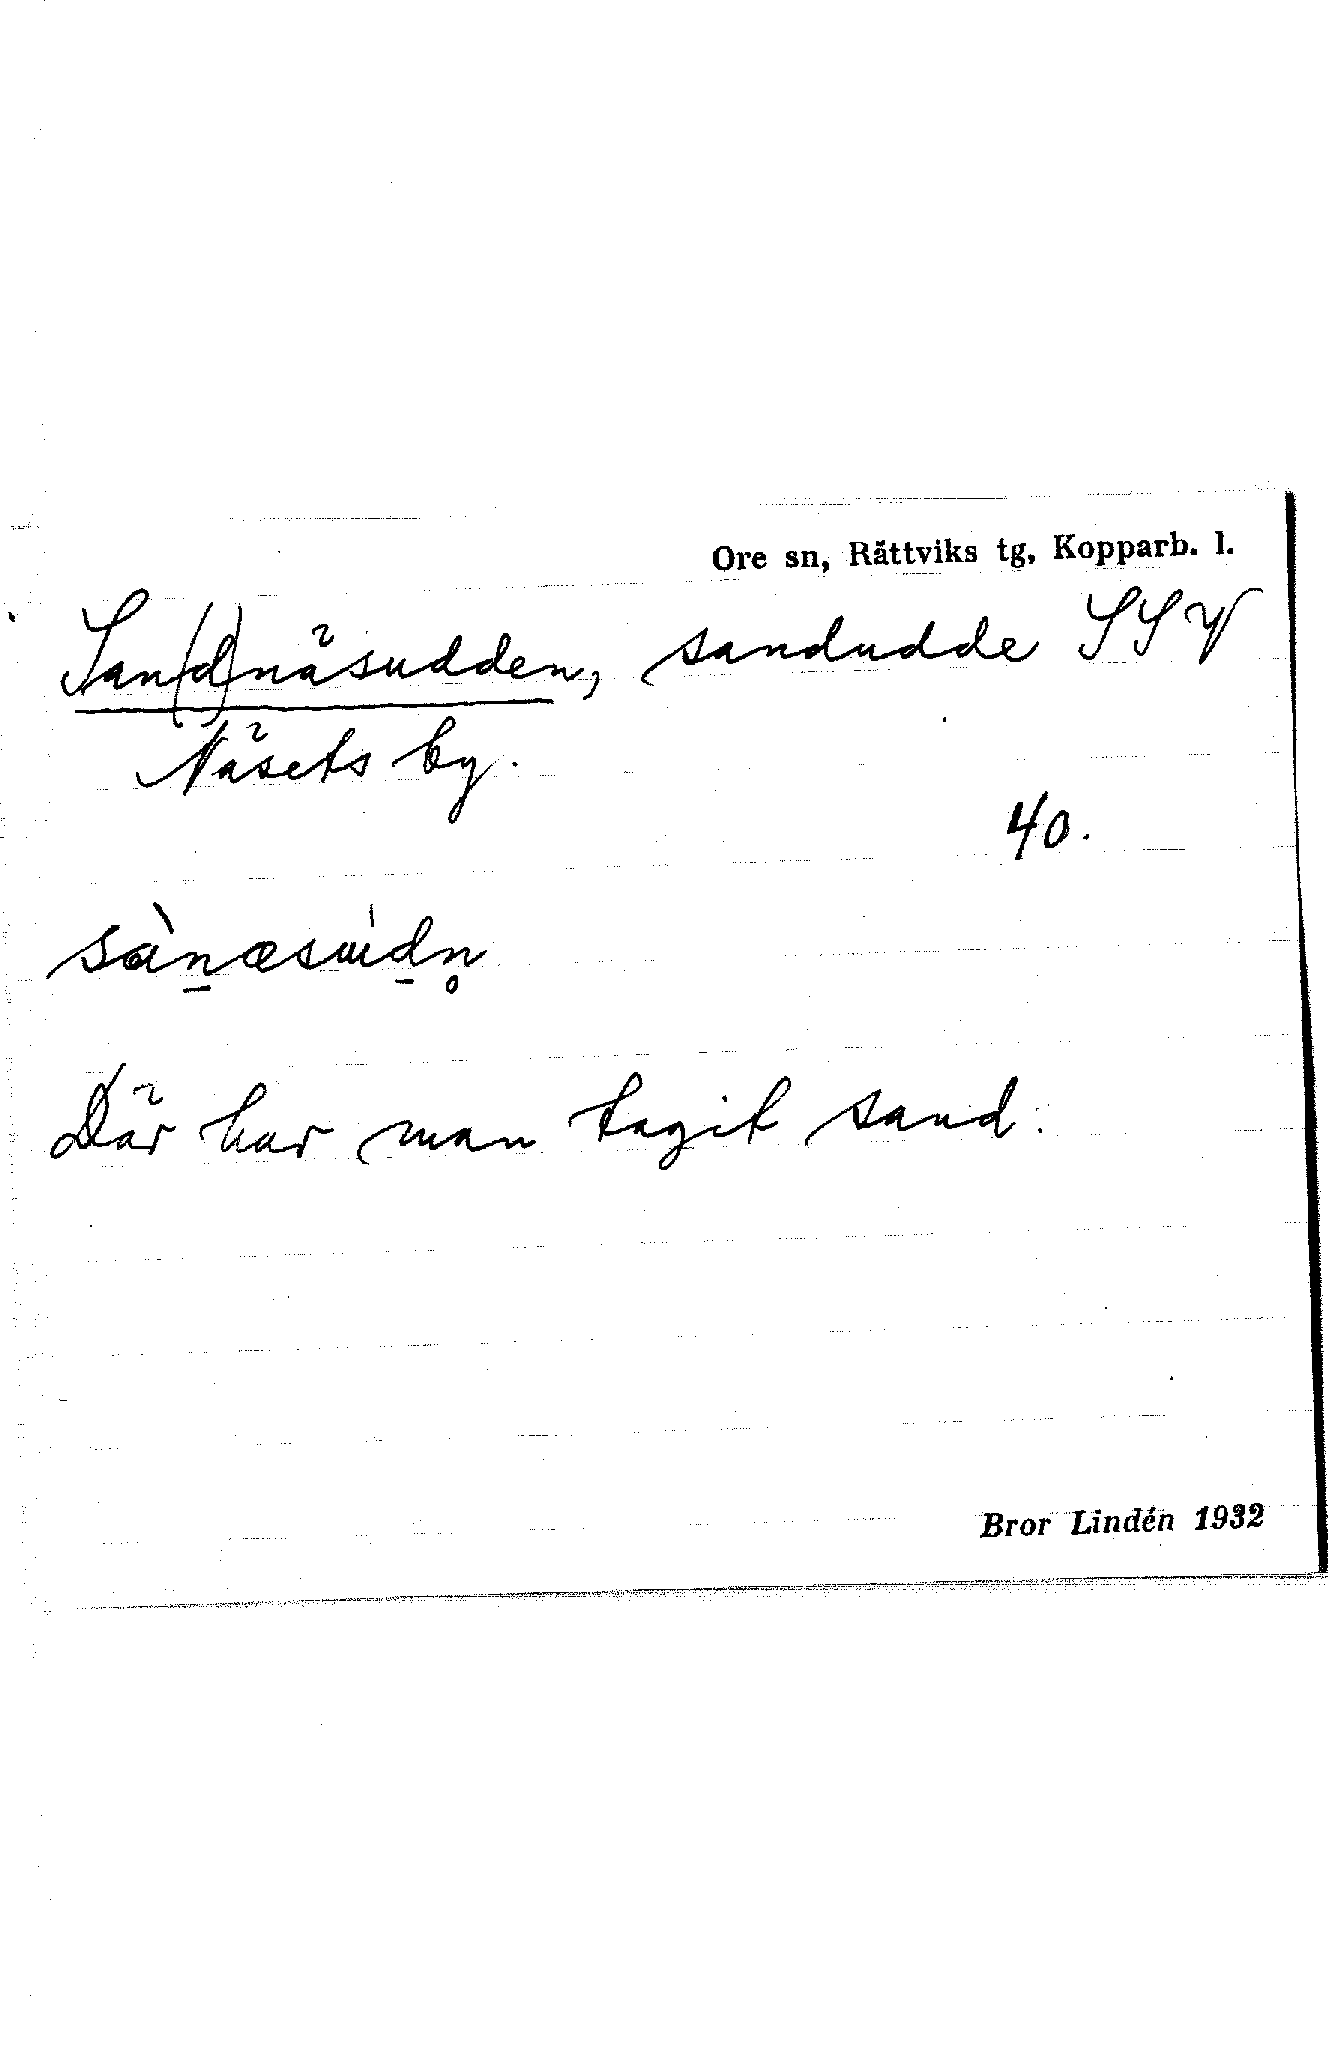 Ore sn, Rättviks tg, Kopparb. l.
San(d)näsudden, sandudde SSV
Näsets by.
40.
sὰn̠æsɯ́d̠n̥
Där har man tagit sand.
Bror Lindén 1932